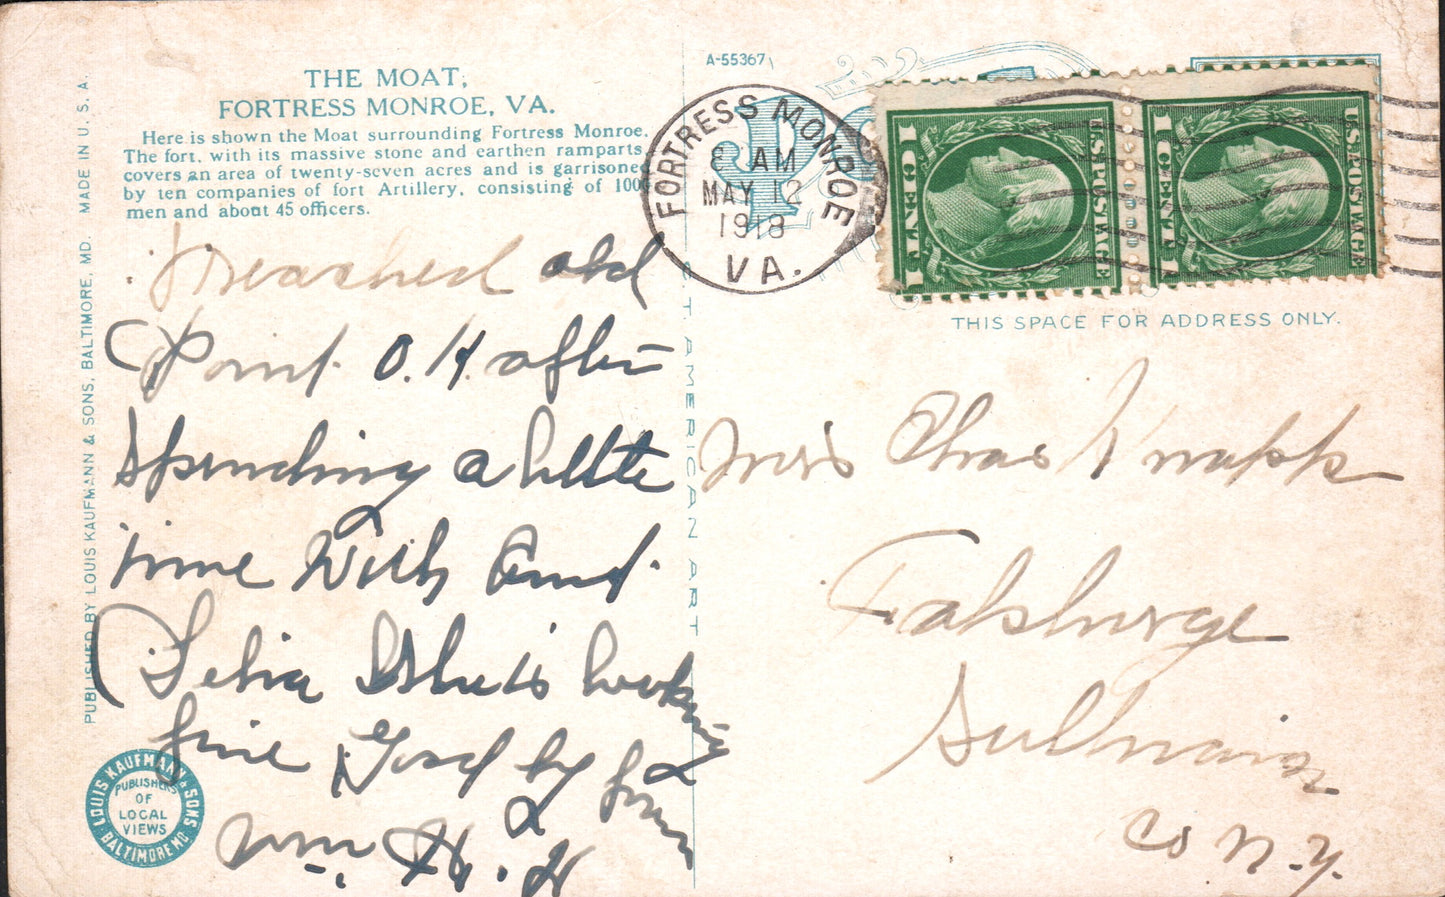 THE MOAT,
FORTRESS MONROE, VA.
Here is shown the Moat surrounding Fortress Monroe.
The fort, with its massive stone and earthen ramparts
covers an area of twenty-seven acres and is garrisoned
by ten companies of fort Artillery, consisting of 1000
men and about 45 officers.
reached old
Point O.K. after
spending a little
time with
Celia She is looking
fine Good by from
Wm H. K
PUBLISHED BY LOUIS KAUFMANN & SONS, BALTIMORE, MD. MADE IN U.S.A.
LOUIS KAUFMANN & SONS
BALTIMORE MD
PUBLISHERS
OF
LOCAL
VIEWS
A-55367
POS
FORTRESS MONROE
8 AM
MAY 12
1918
VA.
U.S. POSTAGE
1 CENT 1
U.S. POSTAGE
1 CENT 1
THIS SPACE FOR ADDRESS ONLY.
ST AMERICAN ART
Mrs Chas Knapp
Fallsburge
Sullivan
Co N.Y.